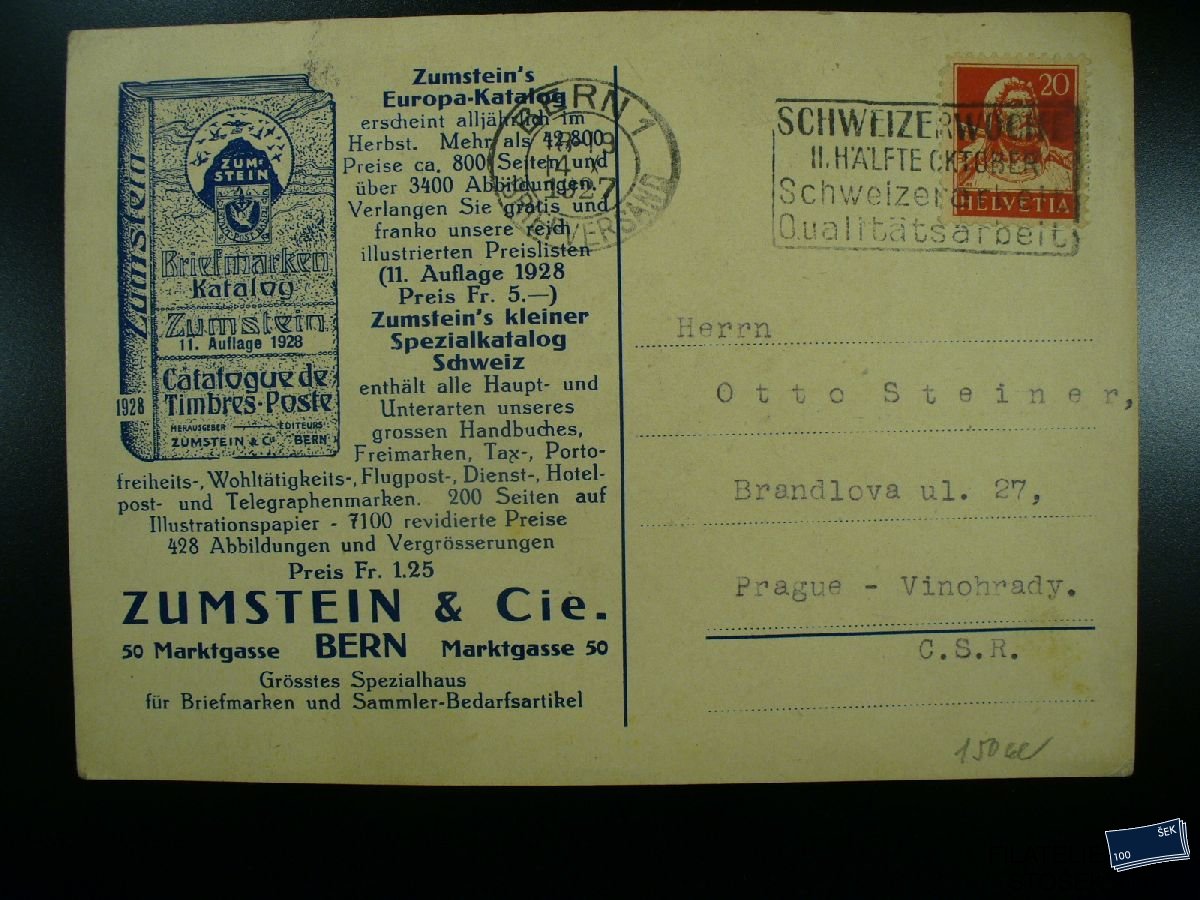 Zumstein
1928
ZUM-
STEIN
Briefmarken
Katalog
Zumstein
11. Auflage 1928
Catalogue de
Timbres-Poste
HERAUSGEBER EDITEURS
ZUMSTEIN & Cie BERN
Zumstein's
Europa-Katalog
erscheint alljährlich im
Herbst. Mehr als 42,800
Preise ca. 800 Seiten und
über 3400 Abbildungen.
Verlangen Sie gratis und
franko unsere reich
illustrierten Preislisten
(11. Auflage 1928
Preis Fr. 5.—)
Zumstein's kleiner
Spezialkatalog
Schweiz
enthält alle Haupt- und
Unterarten unseres
grossen Handbuches,
Freimarken, Tax-, Porto-
freiheits-, Wohltätigkeits-, Flugpost-, Dienst-, Hotel-
post- und Telegraphenmarken. 200 Seiten auf
Illustrationspapier - 7100 revidierte Preise
428 Abbildungen und Vergrösserungen
Preis Fr. 1.25
ZUMSTEIN & Cie.
50 Marktgasse BERN Marktgasse 50
Grösstes Spezialhaus
für Briefmarken und Sammler-Bedarfsartikel
BERN 1
1927
BRIEFVERSAND
SCHWEIZERWOCHE
II. HÄLFTE OKTOBER
Schweizerart
Qualitätsarbeit
20
HELVETIA
Herrn
Otto Steiner,
Brandlova ul. 27,
Prague - Vinohrady.
C.S.R.
100 ŠEK